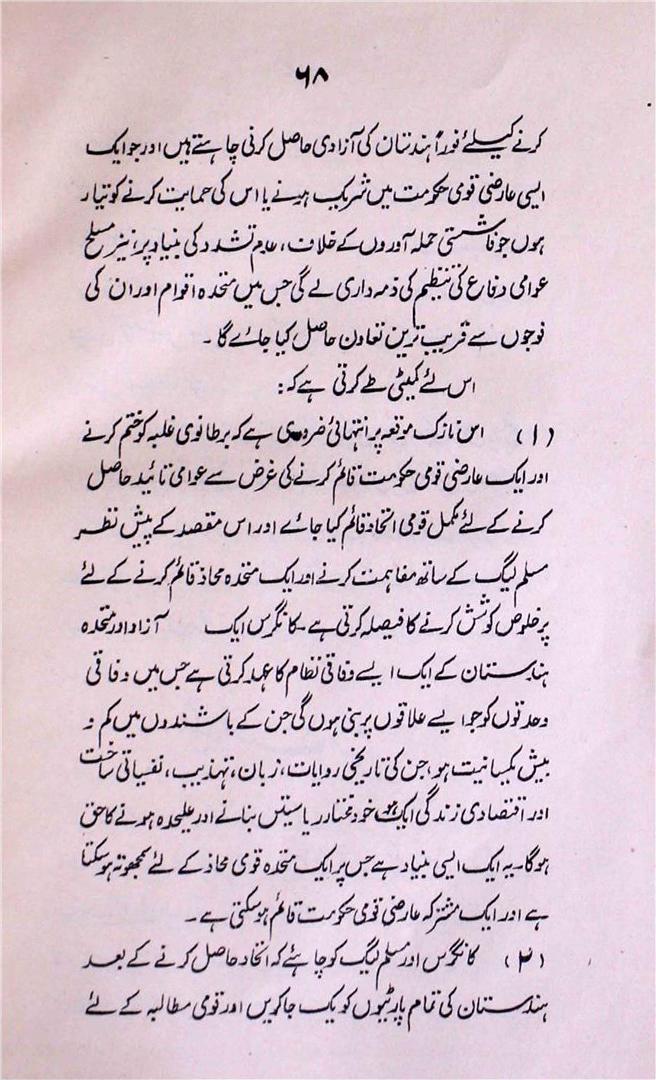 ۶۸
کرنے کیلئے فوراً ہندستان کی آزادی حاصل کرنی چاہتے ہیں اور جو ایک
ایسی عارضی قومی حکومت میں شریک ہونے یا اس کی حمایت کرنے کو تیار
ہوں جو فاشستی حملہ آوروں کے خلاف، عدم تشدد کی بنیاد پر، نیز مسلح
عوامی دفاع کی تنظیم کی ذمہ داری لے گی جس میں متحدہ اقوام اور ان کی
فوجوں سے قریب ترین تعاون حاصل کیا جائے گا ۔
اس لئے کمیٹی طے کرتی ہے کہ :
(۱) اس نازک موقعہ پر انتہائی ضروری ہے کہ برطانوی غلبہ کو ختم کرنے
اور ایک عارضی قومی حکومت قائم کرنے کی غرض سے عوامی تائید حاصل
کرنے کے لئے مکمل قومی اتحاد قائم کیا جائے اور اس مقصد کے پیش نظر
مسلم لیگ کے ساتھ مفاہمت کرنے اور ایک متحدہ محاذ قائم کرنے کے لئے
پرخلوص کوشش کرنے کا فیصلہ کرتی ہے ۔ کانگرس ایک آزاد اور متحدہ
ہندستان کے ایک ایسے وفاقی نظام کا عہد کرتی ہے جس میں وفاقی
وحدتوں کو جو ایسے علاقوں پر مبنی ہوں گی جن کے باشندوں میں کم و
بیش یکسانیت ہو، جن کی تاریخی روایات، زبان، تہذیب، نفسیاتی ساخت
اور اقتصادی زندگی ایک ہو خود مختار ریاستیں بنانے اور علیحدہ ہونے کا حق
ہوگا۔ یہ ایک ایسی بنیاد ہے جس پر ایک متحدہ قومی محاذ کے لئے سمجھوتہ ہوسکتا
ہے اور ایک مشترکہ عارضی قومی حکومت قائم ہوسکتی ہے ۔
(۲) کانگرس اور مسلم لیگ کو چاہئے کہ اتحاد حاصل کرنے کے بعد
ہندستان کی تمام پارٹیوں کو یک جا کریں اور قومی مطالبہ کے لئے